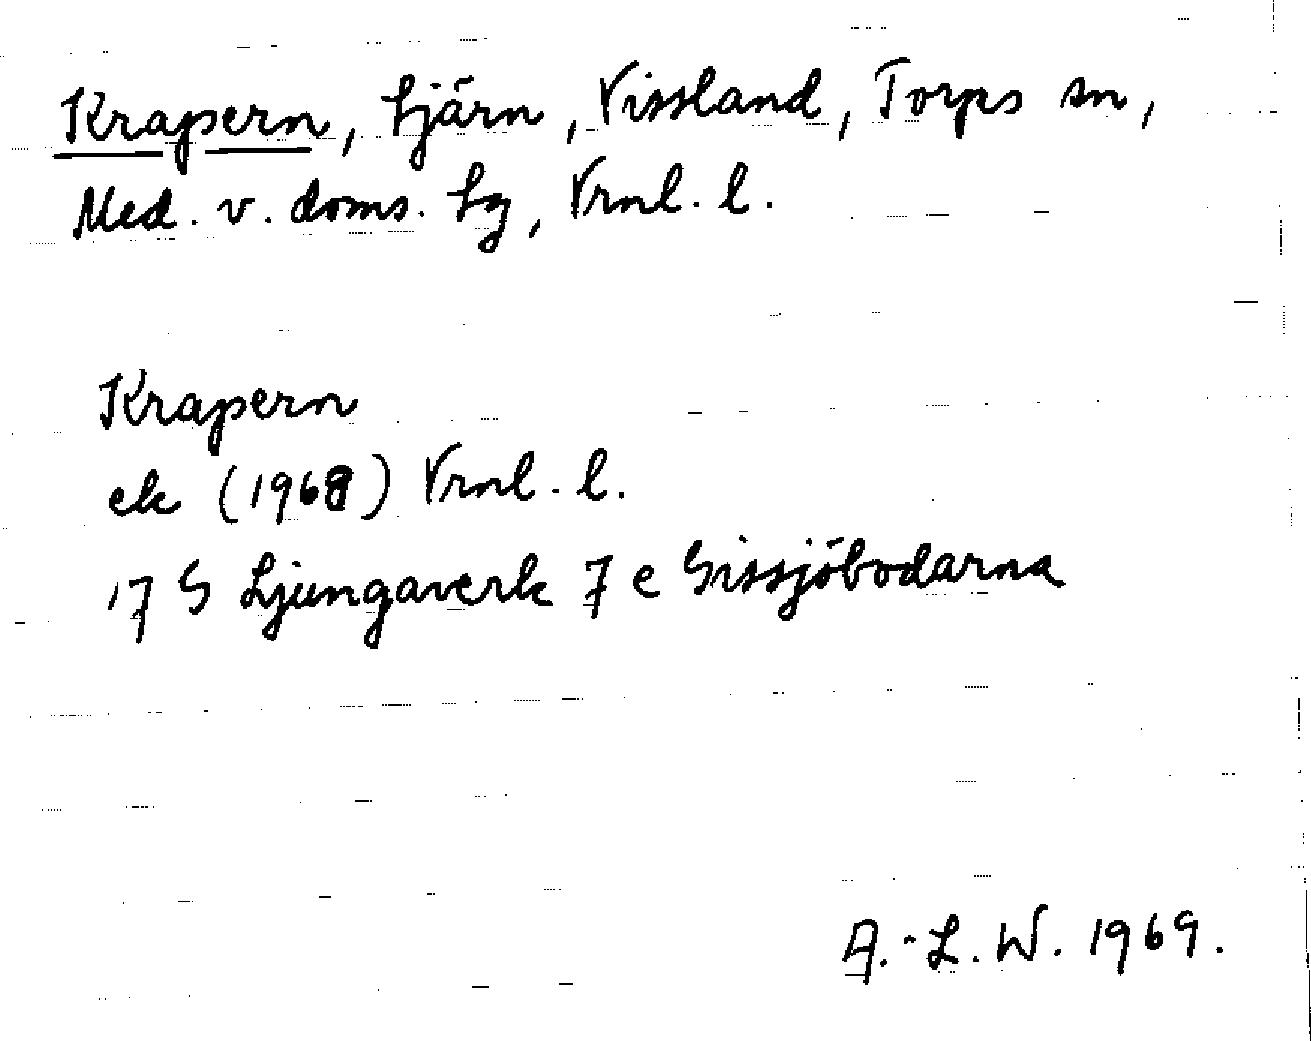 Krapern, tjärn, Vissland, Torps sn,
Med. v. doms. tg, Vrnl. l.
Krapern
ek (1968) Vrnl. l.
17 G Ljungaverk 7 e Gissjöbodarna
A.-L. W. 1969.